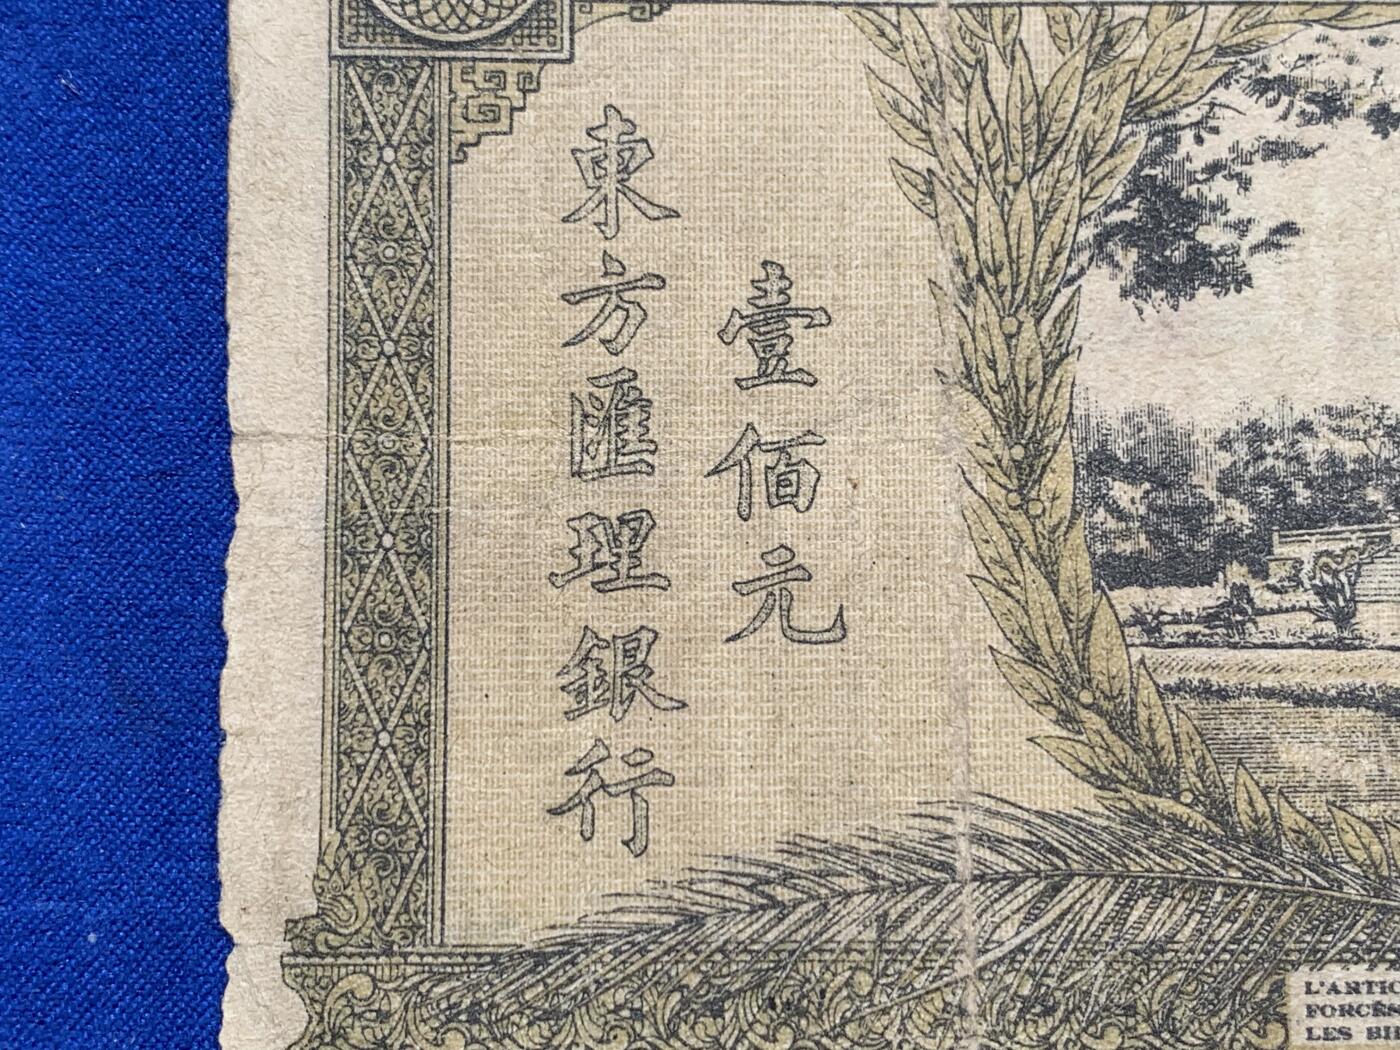 壹佰元
東方匯理銀行
L'ARTIC
FORCÉS
LES BI